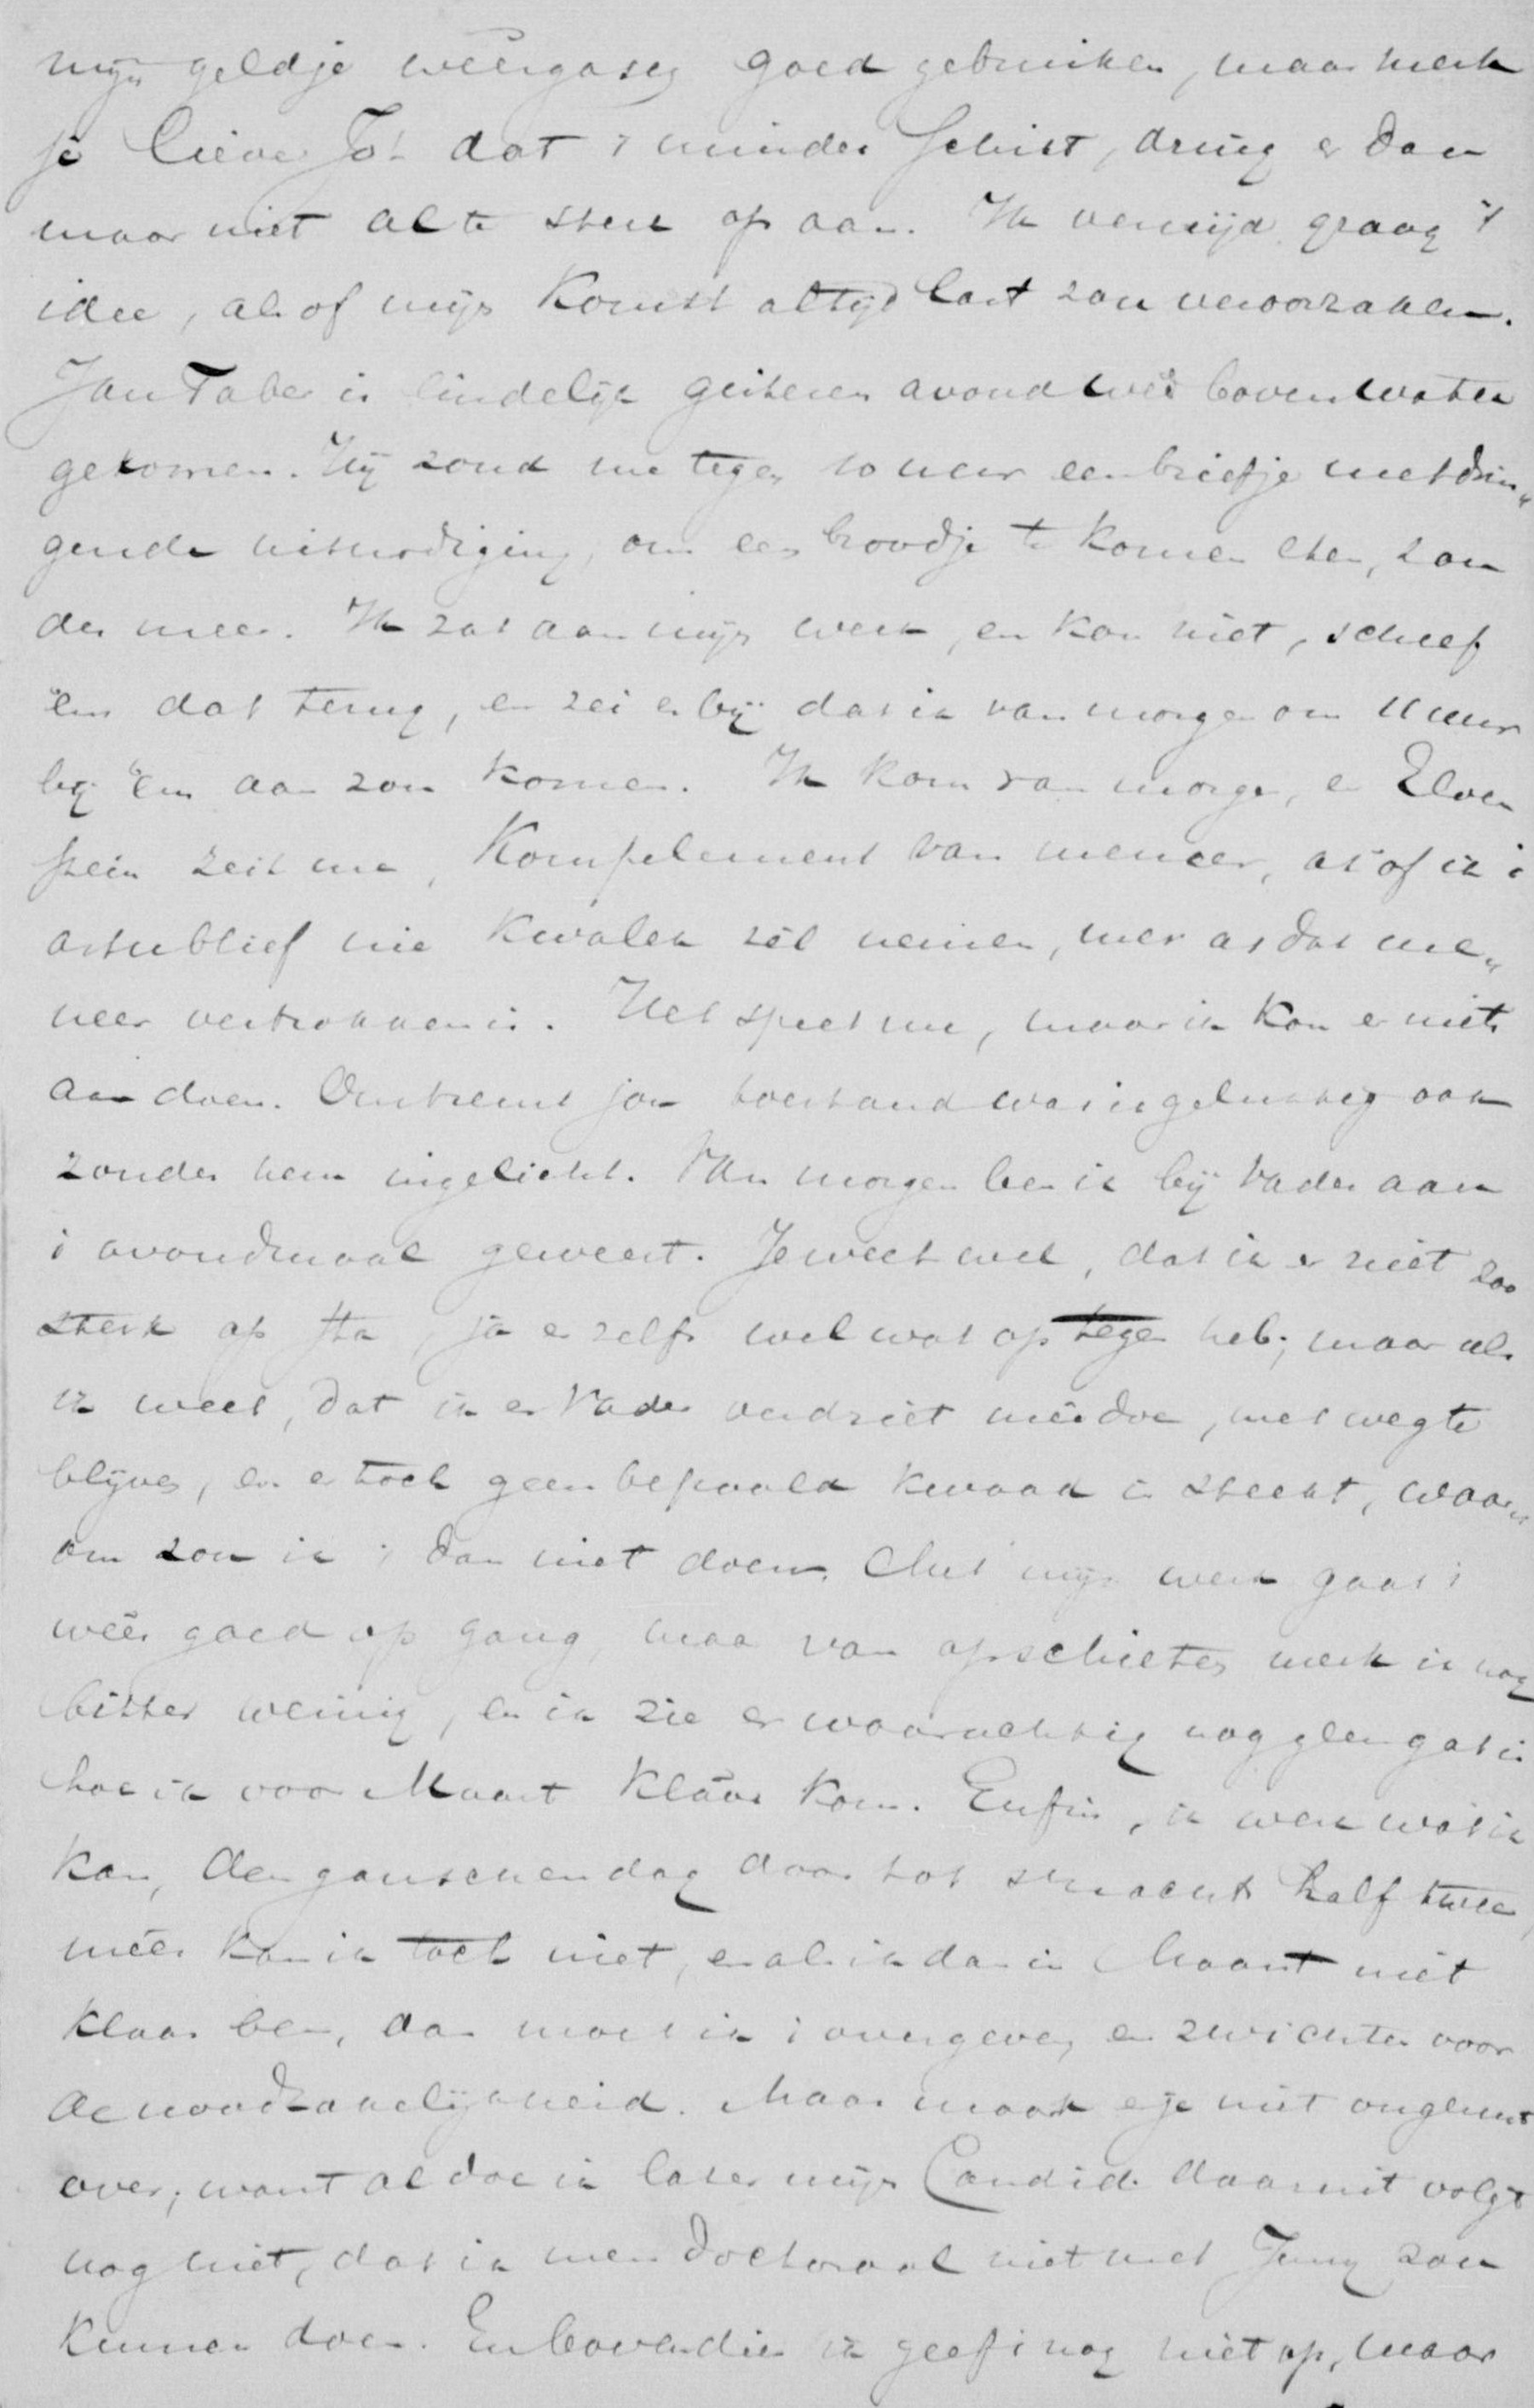 mijn geldje weêrgaseg goed gebruiken, maar merk
je lieve Joh dat 't minder schikt, dring er dan
maar niet al te sterk op aan. Ik vermijd graag 't
idee, alsof mijn komst altijd last zou veroorzaken.
Jan Faber is eindelijk gisteren avond weêr boven water
gekomen. Hij zond me tegen 10 uur een briefje met drin„
gende uitnodiging, om een broodje te komen eten, zon
der meer. Ik zat aan mijn werk, en kon niet, schreef
'em dat terug, en zei er bij dat ik van morgen om 11 uur
bij 'em aan zou komen. Ik kom van morgen, en
zeit me, Kompelement van meneer, as of ik 't
asteblief nie kwalek zel nemen, mer as dat me„
neer vertrokken is. Het speet me, maar ik kon er niets
aan doen. Omtrent jou toestand was ik gelukkig ook
zonder hem ingelicht. Van morgen ben ik bij Vader aan
't avondmaal geweest. Je weet wel, dat ik er niet zoo
sterk op sta, ja er zelfs wel wat op tegen heb; maar als
ik weet, dat ik er Vader verdriet meê doe, met weg te
blijven, en er toch geen bepaald kwaad in steekt, waar„
om zou ik 't dan niet doen. Met mijn werk gaat 't
weêr goed op gang, maar van opschieten merk ik nog
bitter weinig, en ik zie er waarachtig nog geen gat in
hoe ik voor Maart klaar kom. Enfin, ik werk wat ik
kan, den ganschen dag door tot 's nachts half twee,
meêr kan ik toch niet, en als ik dan in Maart niet
klaar ben, dan moet ik 't overgeven, en zwichten voor
de noodzakelijkheid. Maar maak er je niet ongerust
over; want al doe ik later mijn Candid. daaruit volgt
nog niet, dat ik men doctoraal niet met Juny zou
kunnen doen. En bovendien ik geef 't nog niet op, maar